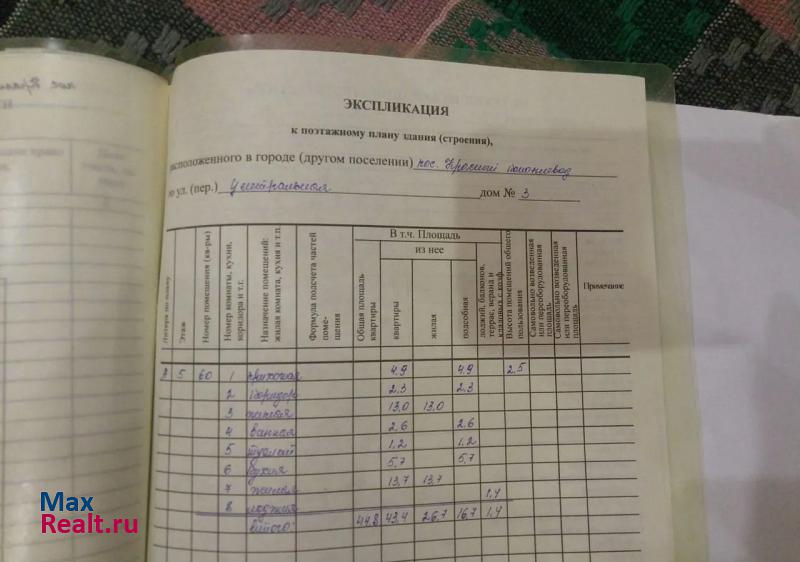 ЭКСПЛИКАЦИЯ
к поэтажному плану здания (строения),
расположенного в городе (другом поселении) пос. Красный
по ул. (пер.) Центральная дом № 3
Литера по плану
Этаж
Номер помещения (кв-ры)
Номер комнаты, кухни, коридора и т.г.
Назначение помещений: жилая комната, кухня и т.п.
Формула подсчета частей поме-щения
В т.ч. Площадь
Общая площадь квартиры
из нее
квартиры
жилая
подсобная
лоджий, балконов, террас, веранд и кладовых с коэф.
Высота помещений общего пользования
Самовольно возведенная или переоборудованная площадь
Самовольно возведенная или переоборудованная площадь
Примечание
5 60 1 прихожая 4.9 4.9 2.5
2 коридор 2.3 2.3
3 жилая 13,0 13,0
4 ванная 2.6 2.6
5 туалет 1.2 1.2
6 кухня 5.7 5.7
7 жилая 13,7 13,7
8 лоджия 1,4
Итого: 44.8 43.4 26.7 16.7 1,4
Max
Realt.ru